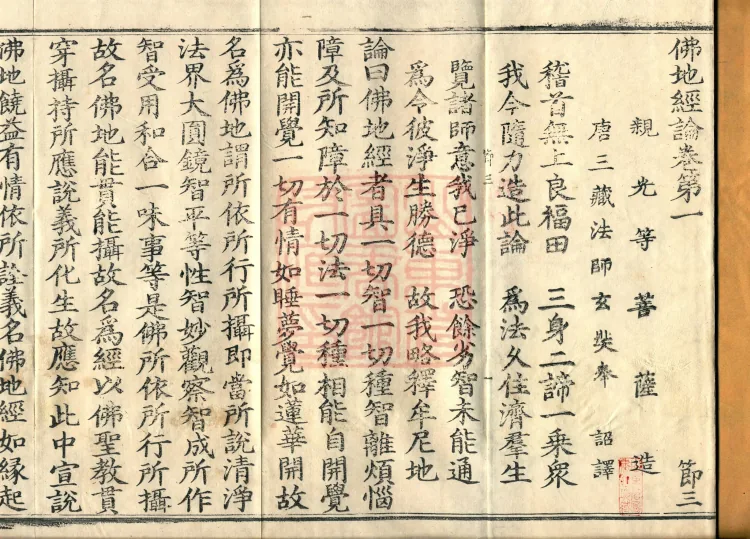 佛地經論卷第一 節三
親光等菩薩造
唐三藏法師玄奘奉 詔譯
稽首無上良福田 三身二諦一乘衆
我今隨力造此論 爲法久住濟羣生
節三
覽諸師意我已淨 恐餘劣智未能通
爲令彼淨生勝德 故我略釋牟尼地
論曰佛地經者具一切智一切種智離煩惱
障及所知障於一切法一切種相能自開覺
亦能開覺一切有情如睡夢覺如蓮華開故
名爲佛地謂所依所行所攝即當所說清淨
法界大圓鏡智平等性智妙觀察智成所作
智受用和合一味事等是佛所依所行所攝
故名佛地能貫能攝故名爲經以佛聖教貫
穿攝持所應說義所化生故應知此中宣說
佛地饒益有情依所詮義名佛地經如緣起